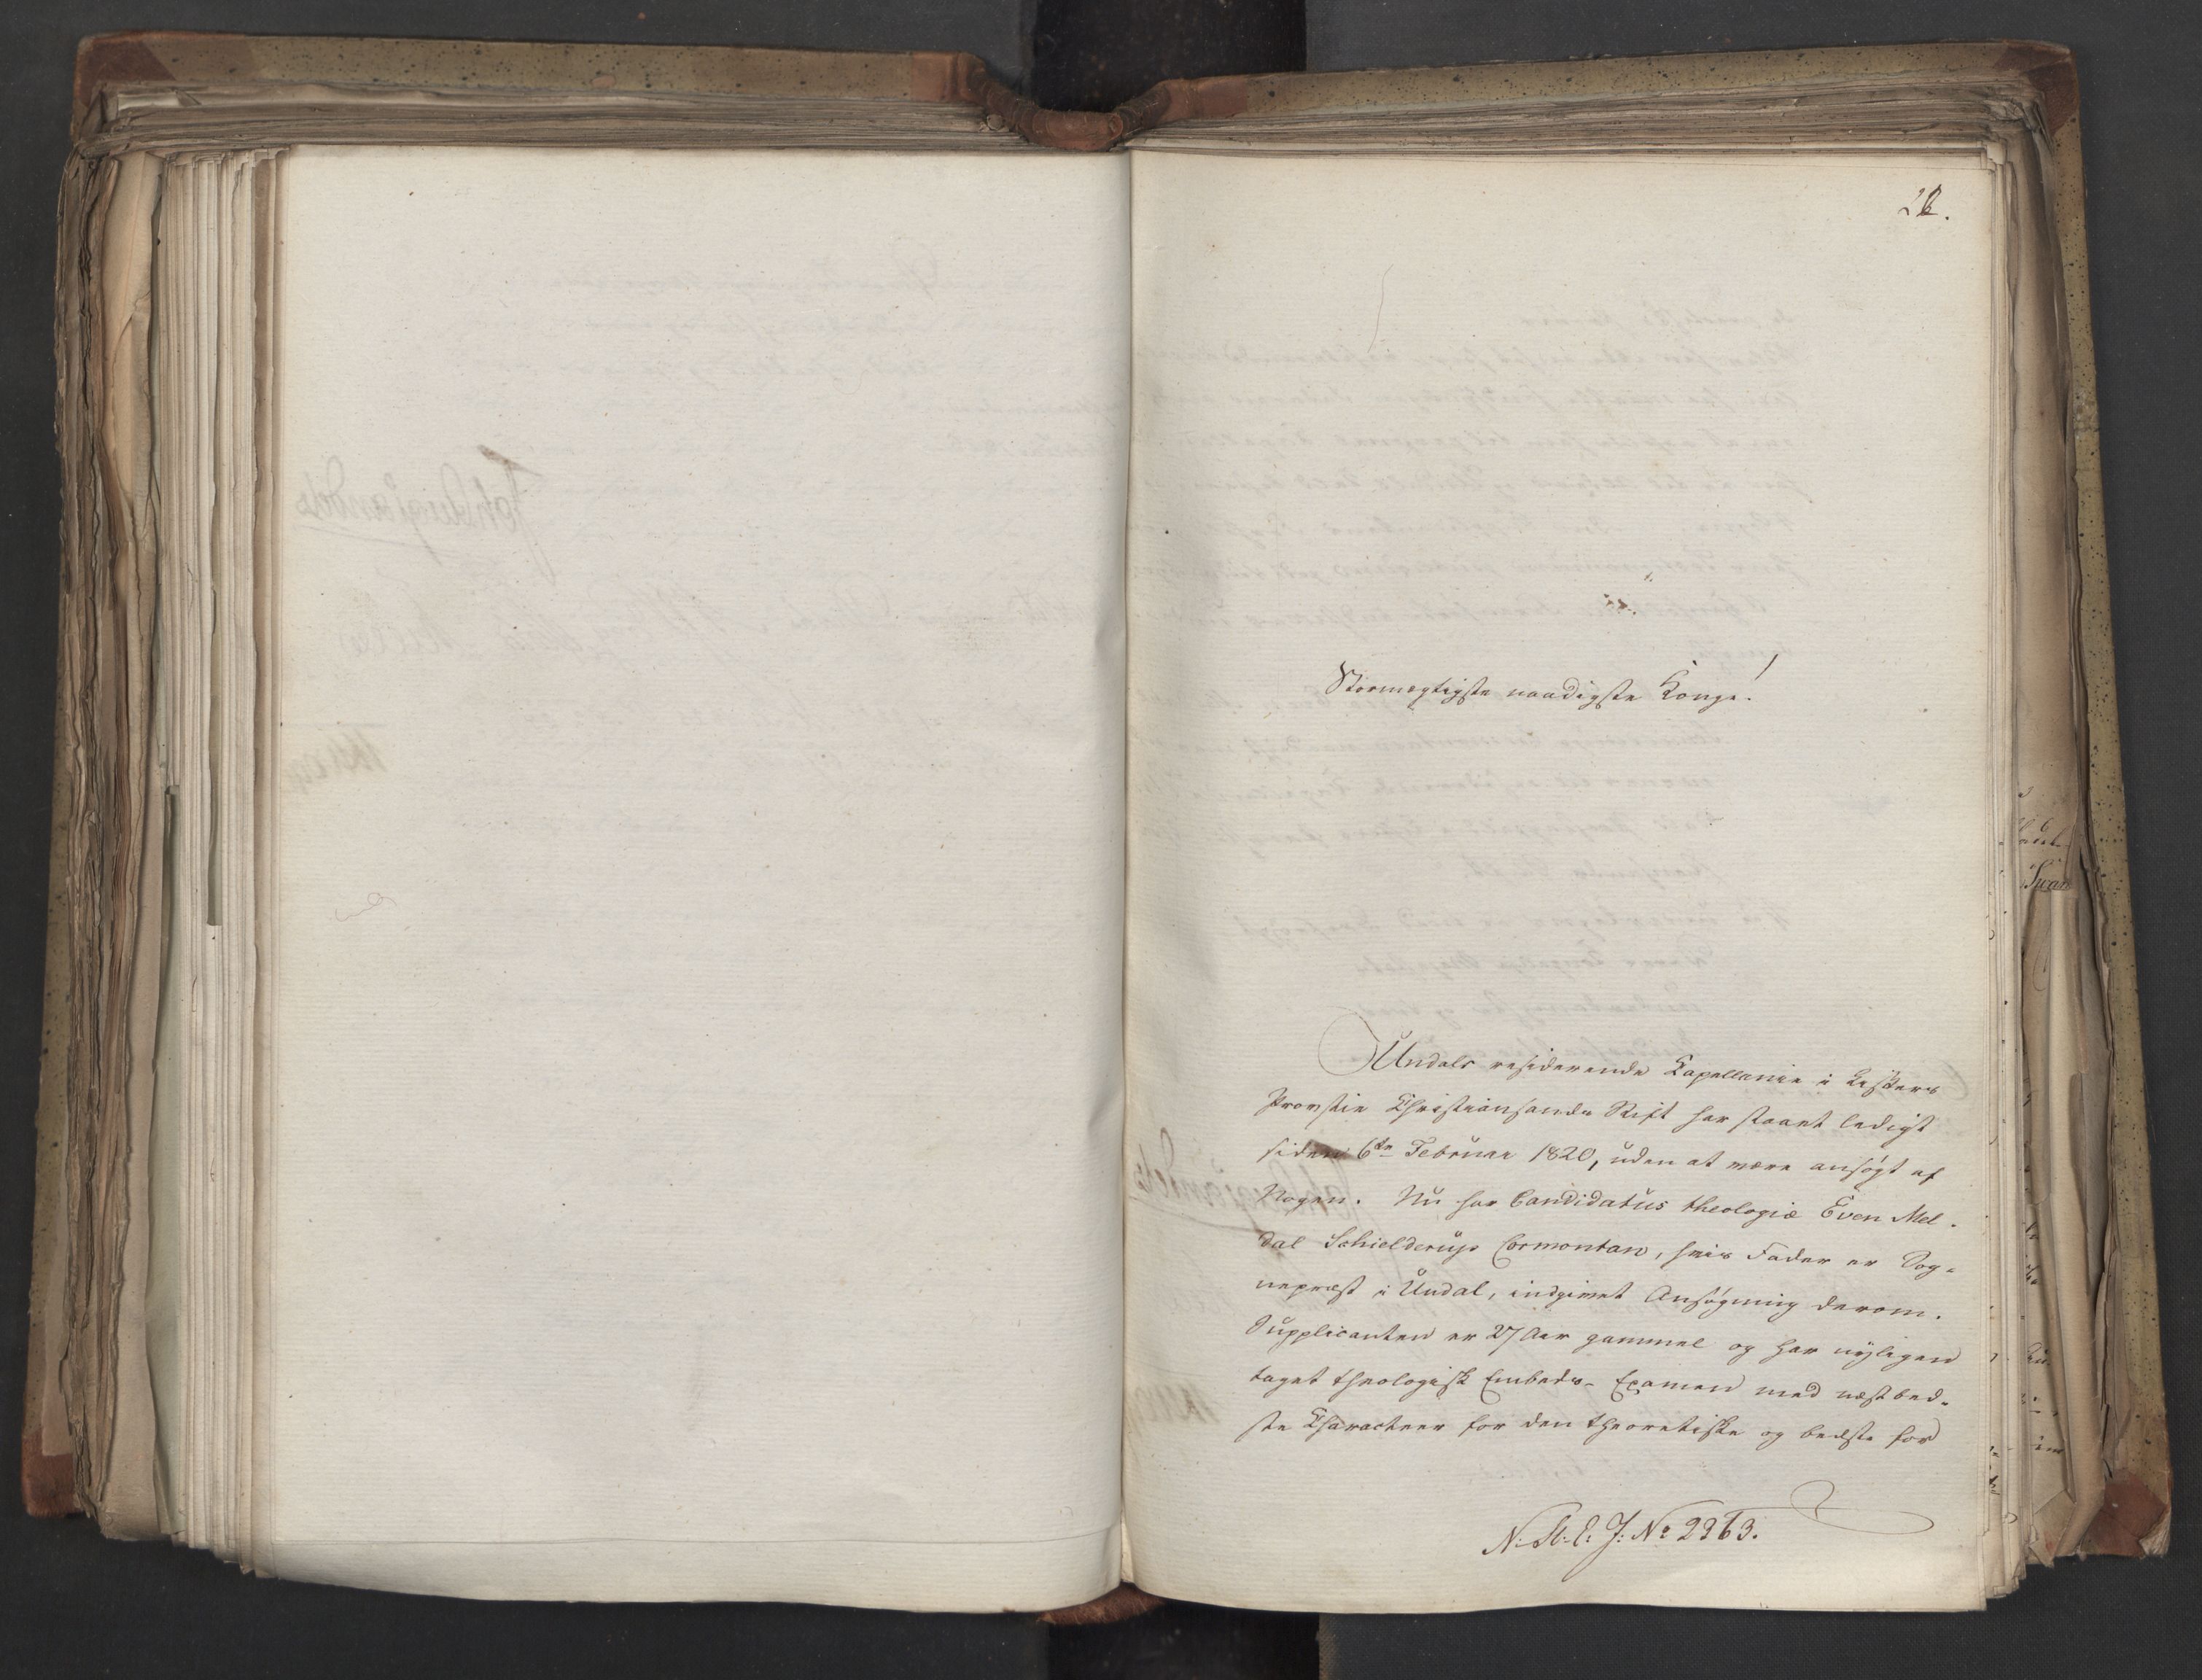 Stormægtigste naadigste Konge!
Undals residerende Kapellanie i Listers
Provstie Christiansands Stift har staaet ledigt
siden 6te Februar 1820, uden at være ansøgt af
Nogen. Nu har Candidatus theologiæ Even Mel-
dal Schielderup Cormontan, hvis Fader er Sog-
nepræst i Undal, indgivet Ansøgning derom.
Supplicanten er 27 Aar gammel og har nyligen
taget theologisk Embeds-Examen med næstbed-
ste Charakteer for den theoretiske og bedste for
N: St: E: J: No 2363.